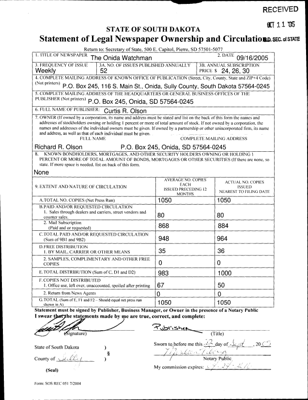 RECEIVED
OCT 11 '05
STATE OF SOUTH DAKOTA
S.D. SEC. of STATE
Statement of Legal Newspaper Ownership and Circulation
Return to: Secretary of State, 500 E. Capitol, Pierre, SD 57501-5077
1. TITLE OF NEWSPAPER The Onida Watchman
2. DATE 09/16/2005
3. FREQUENCY OF ISSUE Weekly
3A. NO. OF ISSUES PUBLISHED ANNUALLY 52
3B. ANNUAL SUBSCRIPTION PRICE $ 24, 26, 30
4. COMPLETE MAILING ADDRESS OF KNOWN OFFICE OF PUBLICATION (Street, City, County, State and ZIP+4 Code)
(Not printers) P.O. Box 245, 116 S. Main St., Onida, Sully County, South Dakota 57564-0245
5. COMPLETE MAILING ADDRESS OF THE HEADQUARTERS OR GENERAL BUSINESS OFFICES OF THE
PUBLISHER (Not printers) P.O. Box 245, Onida, SD 57564-0245
6. FULL NAME OF PUBLISHER: Curtis R. Olson
7. OWNER (If owned by a corporation, its name and address must be stated and list on the back of this form the names and
addresses of stockholders owning or holding 1 percent or more of total amount of stock. If not owned by a corporation, the
names and addresses of the individual owners must be given. If owned by a partnership or other unincorporated firm, its name
and address, as well as that of each individual must be given.
FULL NAME COMPLETE MAILING ADDRESS
Richard R. Olson P.O. Box 245, Onida, SD 57564-0245
8. KNOWN BONDHOLDERS, MORTGAGES, AND OTHER SECURITY HOLDERS OWNING OR HOLDING 1
PERCENT OR MORE OF TOTAL AMOUNT OF BONDS, MORTGAGES OR OTHER SECURITIES (If there are none, so
state. If more space is needed, list on back of this form.
None
9. EXTENT AND NATURE OF CIRCULATION
AVERAGE NO. COPIES EACH ISSUED PRECEDING 12 MONTHS
ACTUAL NO. COPIES ISSUED NEAREST TO FILING DATE
A. TOTAL NO. COPIES (Net Press Run) 1050 1050
B. PAID AND/OR REQUESTED CIRCULATION
1. Sales through dealers and carriers, street vendors and
counter sales. 80 80
2. Mail Subscription
(Paid and/or requested) 868 884
C. TOTAL PAID AND/OR REQUESTED CIRCULATION
(Sum of 9B1 and 9B2) 948 964
D. FREE DISTRIBUTION
1. BY MAIL, CARRIER OR OTHER MEANS 35 36
2. SAMPLES, COMPLIMENTARY AND OTHER FREE
COPIES 0 0
E. TOTAL DISTRIBUTION (Sum of C, D1 and D2) 983 1000
F. COPIES NOT DISTRIBUTED
1. Office use, left over, unaccounted, spoiled after printing 67 50
2. Return from News Agents 0 0
G. TOTAL (Sum of E, F1 and F2 - Should equal net press run
shown in A) 1050 1050
Statement must be signed by Publisher, Business Manager, or Owner in the presence of a Notary Public
I swear that the statements made by me are true, correct, and complete:
Publisher
(Signature) (Title)
State of South Dakota )
Sworn to before me this day of Sept 2005
) §
County of )
Notary Public
(Seal)
My commission expires:
Form: SOS REC 051 7/2004